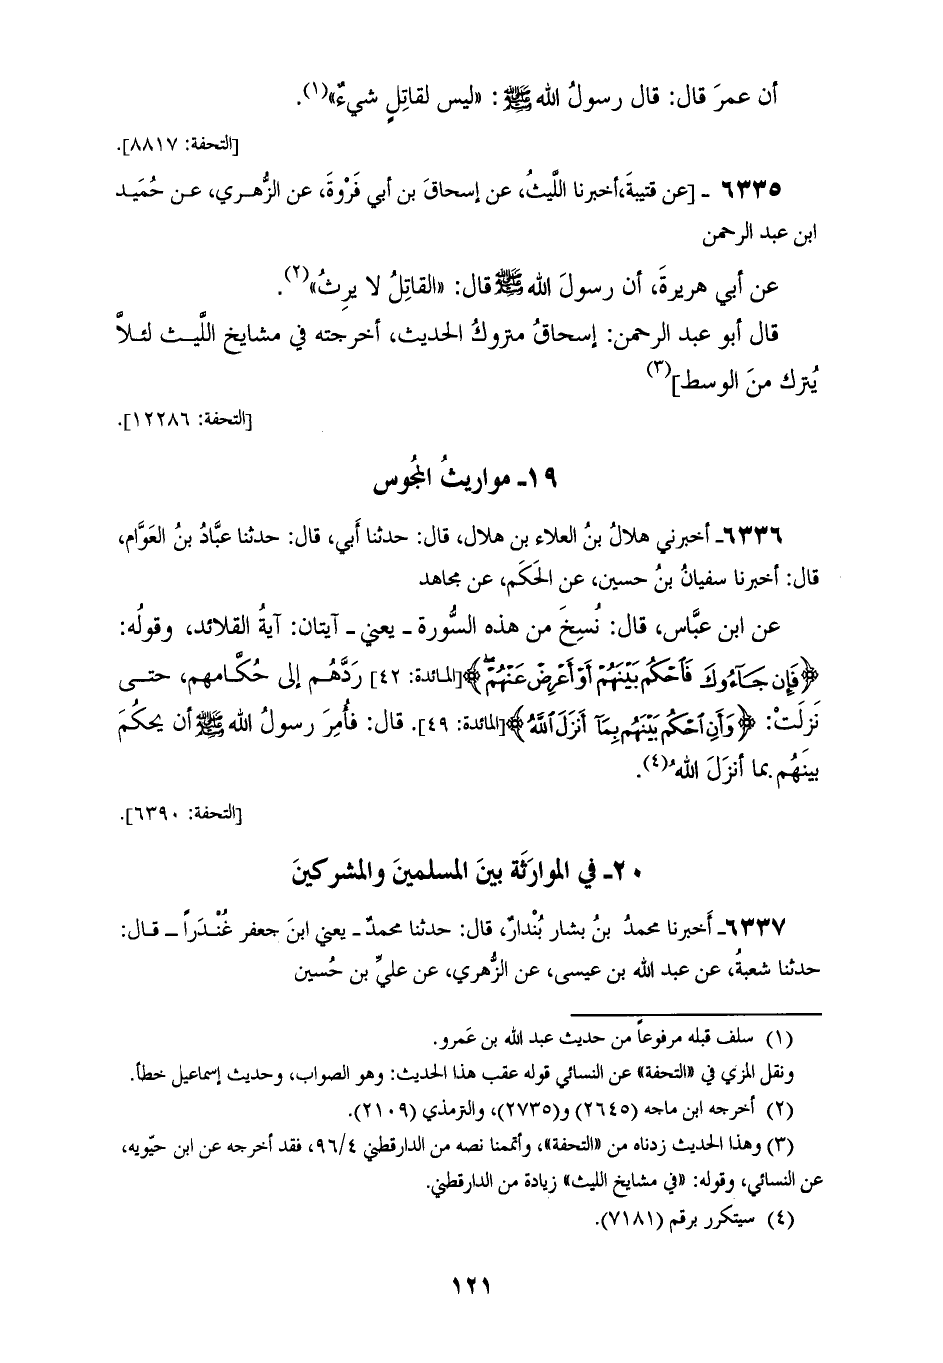 أن عمرَ قال: قال رسولُ الله ﷺ: «ليس لقاتِلٍ شيءٌ»(١).
[التحفة: ٨٨١٧].
٦٣٣٥ ـ [عن قتيبةَ،أخبرنا اللَّيثُ، عن إسحاقَ بن أبي فَرْوةَ، عن الزُّهـري، عـن حُمَيـد
ابن عبد الرحمن
عن أبي هريرةَ، أن رسولَ الله ﷺ قال: «القاتِلُ لا يرِثُ»(٢).
قال أبو عبد الرحمن: إسحاقُ متروكُ الحديث، أخرجته في مشايخ اللَّيـث لئـلاَّ
يُترك منَ الوسط](٣)
[التحفة: ١٢٢٨٦].
١٩ـ مواريثُ المجُوس
٦٣٣٦ـ أخبرني هلالُ بنُ العلاء بن هلال، قال: حدثنا أَبي، قال: حدثنا عبَّادُ بنُ العَوَّام،
قال: أخبرنا سفيانُ بنُ حسين، عن الحَكَم، عن مجاهد
عن ابن عبَّاس، قال: نُسِخَ من هذه السُّورة ـ يعني ـ آيتان: آيةُ القلائد، وقولُه:
﴿فَإِن جَآءُوكَ فَٱحْكُم بَيْنَهُمْ أَوْ أَعْرِضْ عَنْهُمْ ۖ﴾[المائدة: ٤٢] رَدَّهُـم إلى حُكَّـامهم، حتـى
نَزلَتْ: ﴿وَأَنِ ٱحْكُم بَيْنَهُم بِمَآ أَنزَلَ ٱللَّهُ﴾[المائدة: ٤٩]. قال: فأُمِرَ رسولُ الله ﷺ أن يحكُمَ
بينَهُم بما أنزَلَ اللهُ(٤).
[التحفة: ٦٣٩٠].
٢٠ـ في الموارَثَة بينَ المسلمينَ والمشركينَ
٦٣٣٧ـ أَخبرنا محمدُ بنُ بشار بُنْدارٌ، قال: حدثنا محمدٌ ـ يعني ابنَ جعفر غُنْـدَراً ـ قـال:
حدثنا شعبةُ، عن عبد الله بن عيسى، عن الزُّهري، عن عليِّ بن حُسين
(١) سلف قبله مرفوعاً من حديث عبد الله بن عَمرو.
ونقل المزي في «التحفة» عن النسائي قوله عقب هذا الحديث: وهو الصواب، وحديث إسماعيل خطأ.
(٢) أخرجه ابن ماجه (٢٦٤٥) و(٢٧٣٥)، والترمذي (٢١٠٩).
(٣) وهذا الحديث زدناه من «التحفة»، وأتممنا نصه من الدارقطني ٩٦/٤، فقد أخرجه عن ابن حيّويه،
عن النسائي، وقوله: «في مشايخ الليث» زيادة من الدارقطني.
(٤) سيتكرر برقم (٧١٨١).
١٢١